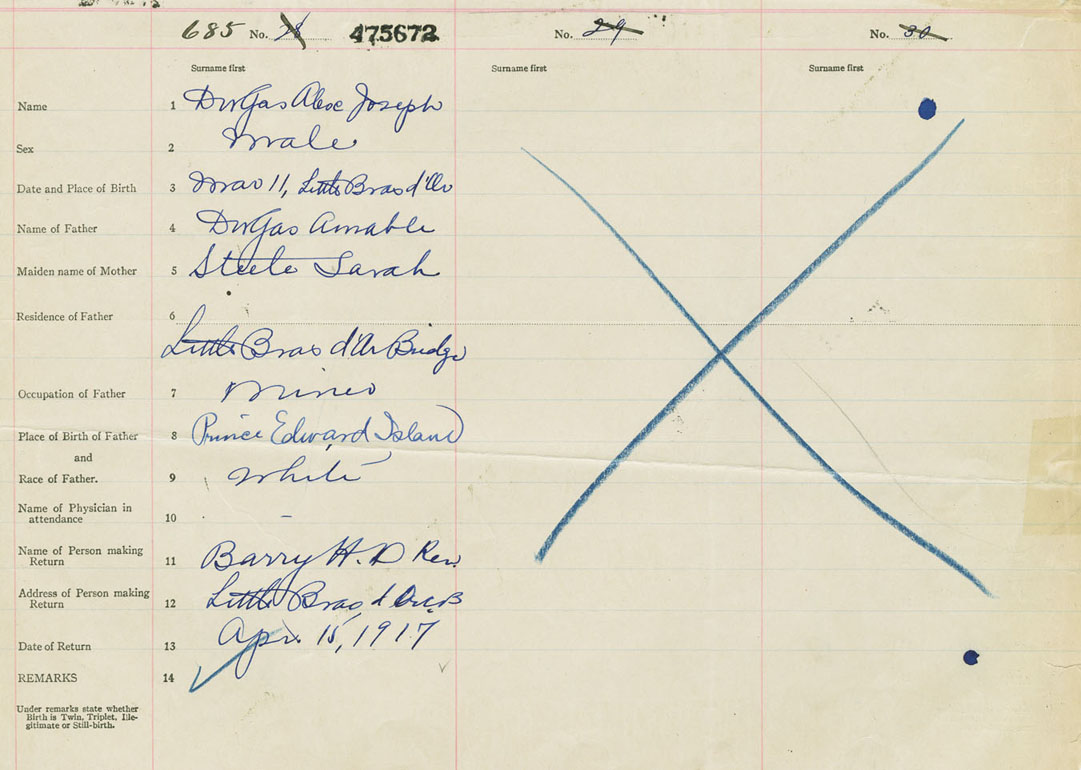 685 No. 28 475672 No. 29 No. 30
Surname first Surname first Surname first
Name 1 DuGas Alex Joseph
Sex 2 Male
Date and Place of Birth 3 Mar 11, Little Bras d'Or
Name of Father 4 DuGas Amable
Maiden name of Mother 5 Steele Sarah
Residence of Father 6
Little Bras d'Or Bridge
Occupation of Father 7 Miner
Place of Birth of Father 8 Prince Edward Island
and
Race of Father. 9 White
Name of Physician in
attendance 10 –
Name of Person making
Return 11 Barry H. D Rev.
Address of Person making
Return 12 Little Bras d'Or B
Date of Return 13 Apr. 15, 1917
REMARKS 14
Under remarks state whether
Birth is Twin, Triplet, Ille-
gitimate or Still-birth.